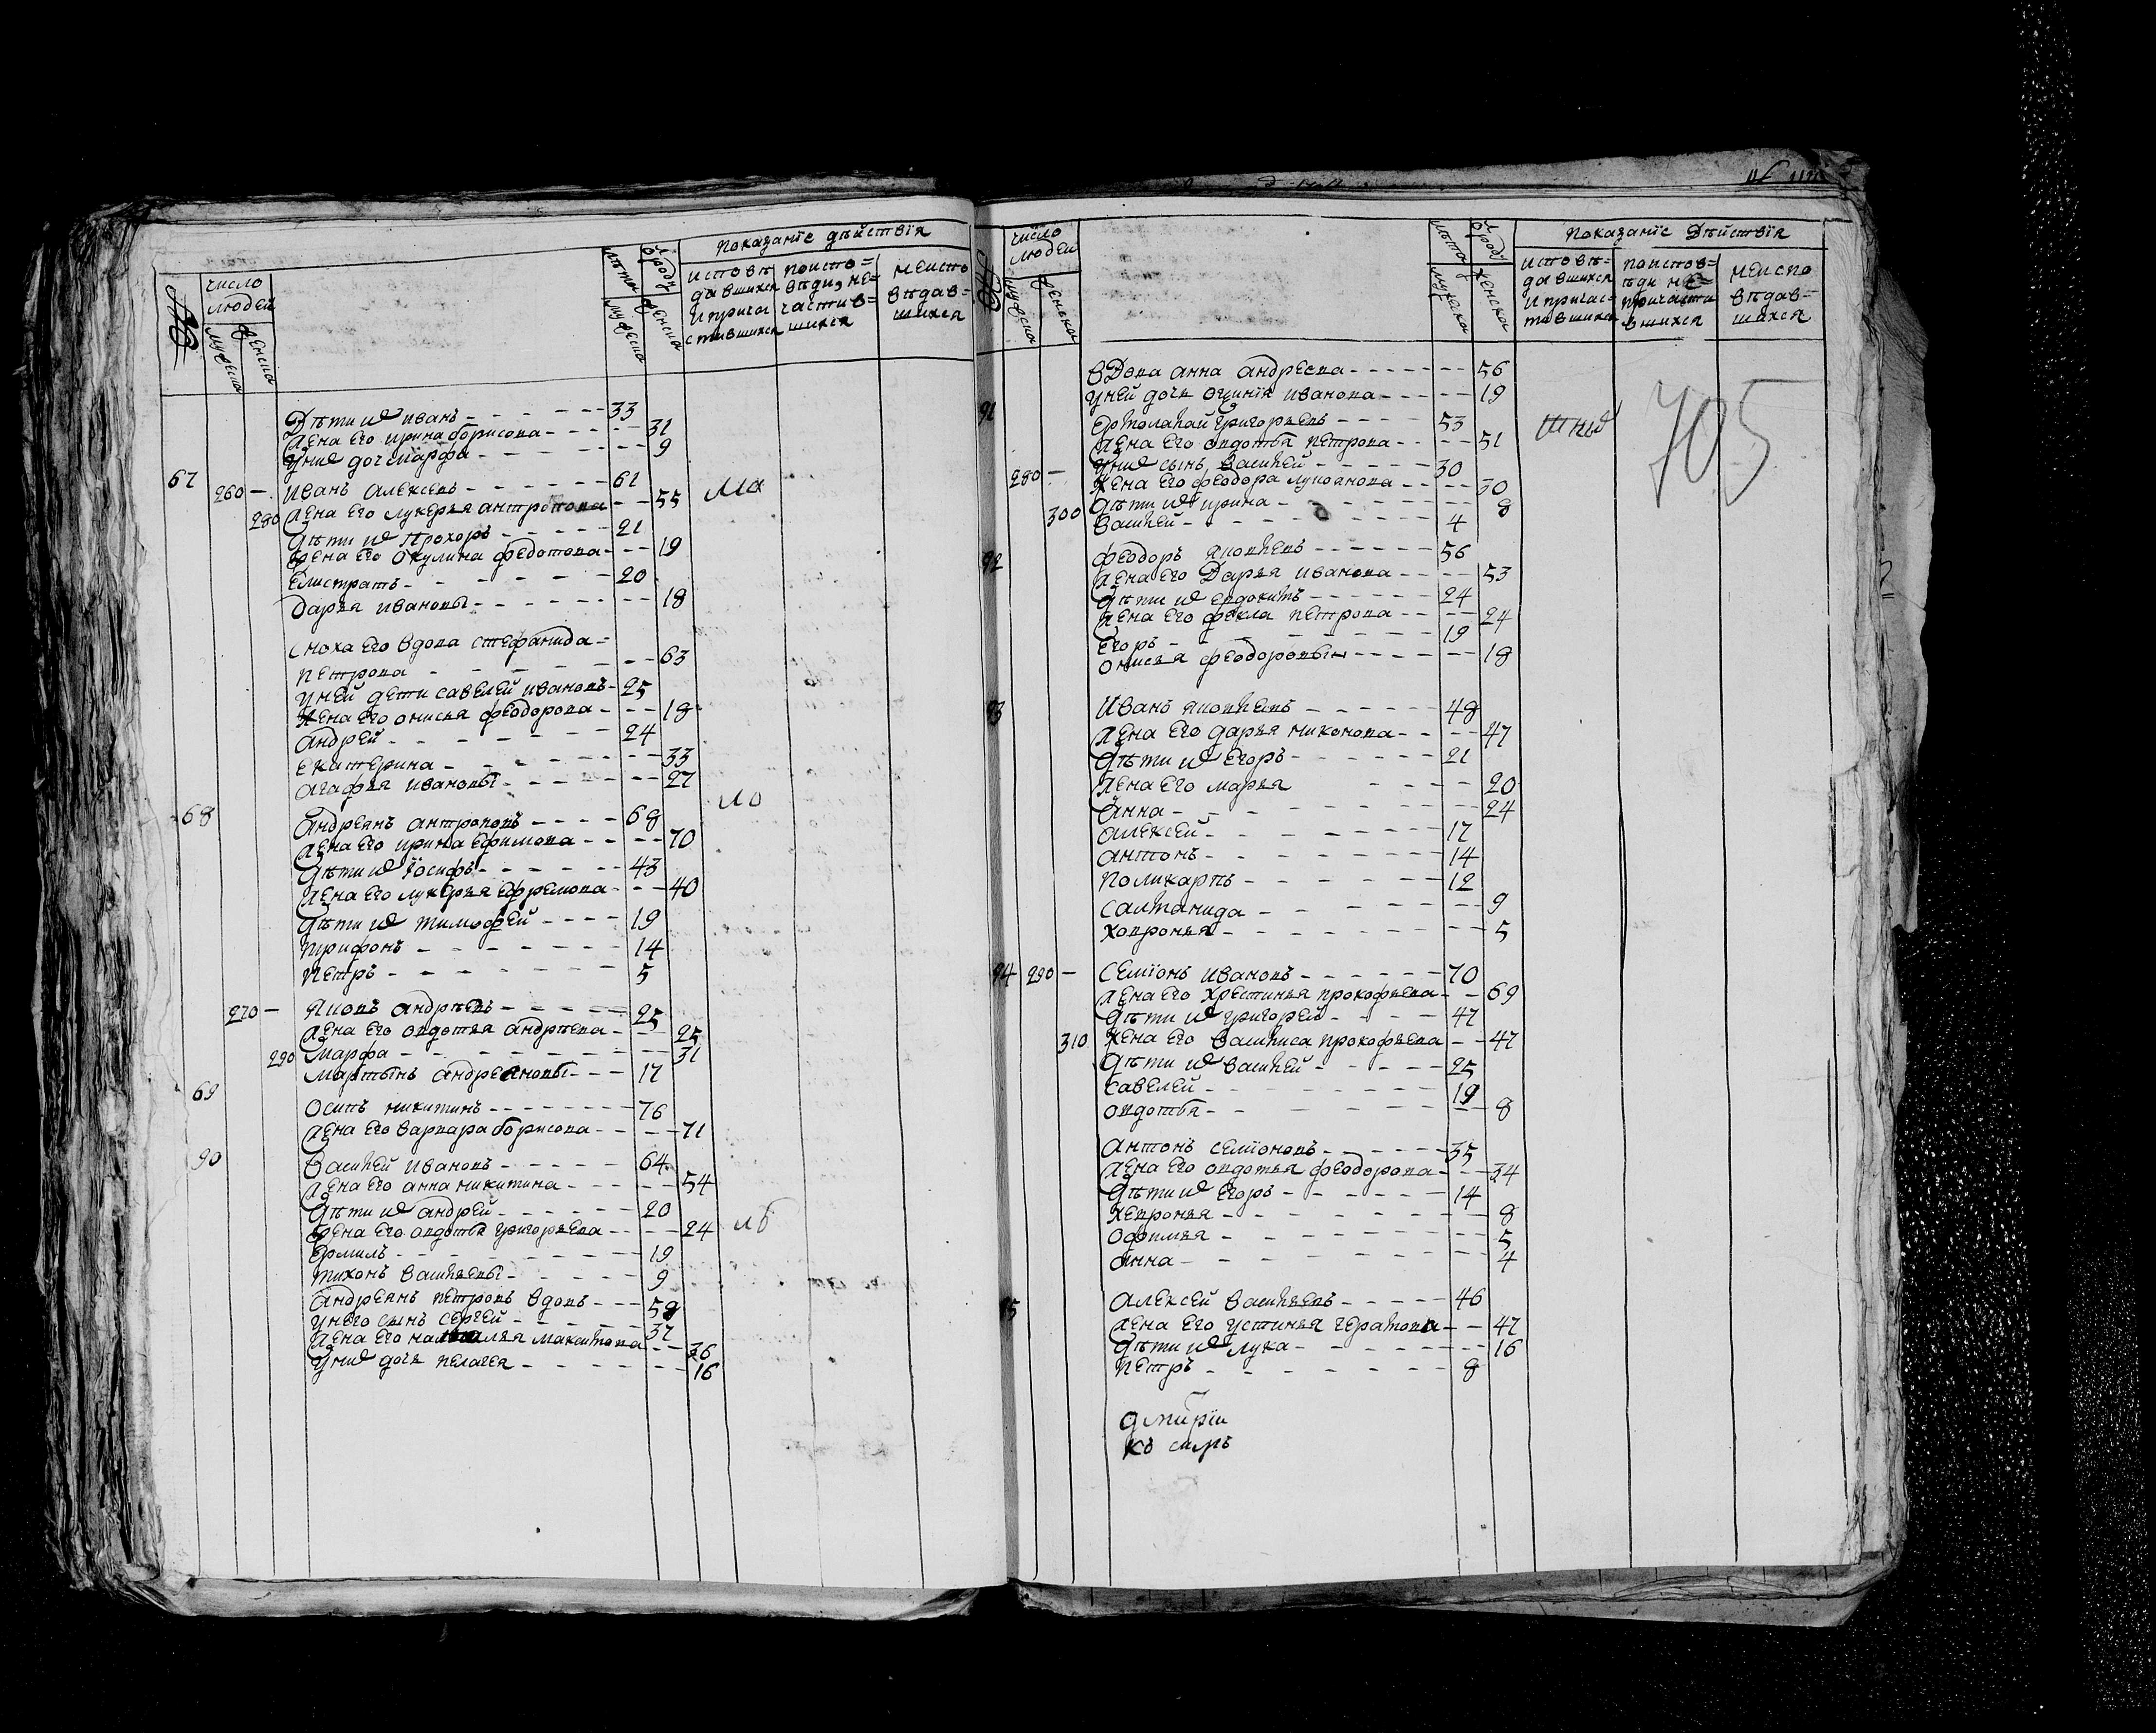 число людей
мужеска
женска
лѣта ѿ роду
мужеска
женска
показанїе дѣйствїя
исповѣдавшихся и причастившихся
по исповѣди, не=
частив=
шихся
неиспо
вѣдав=
шихся
Дѣти ихъ иванъ - - - - - - 33
жена его ирина борисова - - - - - 31
у них доч марфа - - - - - - - 9
67 260 - иванъ алексеевъ - - - - - - 61
280 жена его лукерья антропова - - 55
дѣти их прохоръ - - - - 21
жена его окулина федотова - - - 19
елистратъ - - - - - - 20
дарья ивановы - - - - - - - - 18
сноха его вдова стефанида =
петрова - - - - - - - - 63
у ней дети савелей ивановъ - 25
жена его онисья феодорова - - - - 18
андрей - - - - - - - 24
екатерина - - - - - - - - 33
агафья ивановы - - - - - - - 27
68 андреянъ антроповъ - - - - 68
жена его ирина ефимова - - - - 70
дѣти их їосифъ - - - - - 43
жена его лукерья ефремова - - - 40
дѣти их тимофей - - - - 19
трифонъ - - - - - - - 14
петръ - - - - - - - - 5
270 - яковъ андрѣевъ - - - - - 25
жена его овдотья андрѣева - - - 25
290 марфа - - - - - - - - - 31
мартынъ андреяновы - - - 17
69 осипъ никитинъ - - - - - - - - 76
жена его варвара борисова - - - - - 71
90 василей ивановъ - - - - - - 64
жена его анна никитина - - - - - - 54
дѣти их андрей - - - - - - 20
жена его овдотья григорьева - - - - 24
ермилъ - - - - - - - - - 19
тихонъ васильевы - - - - - 9
андреянъ петровъ вдовъ - - - 59
у него сынъ сергей - - - - - - 37
жена его наталья максимова - - 36
у них дочь пелагея - - - - - - - - 16
число людей
мужеска
женска
лѣта ѿ роду
мужеска
женска
показанїе Дѣйствїя
исповѣ=
давшихся
и причас=
тившихся
по испов=
ѣди не=
причасти
вшихся
неиспо
вѣдав=
шихся
705
вДова анна андреева - - - - - - - 56
у ней дочь ивanова - - - - - 19
91 григорьевъ - - - - 53
жена его овдотья петрова - - - - 51
у них сынъ василей - - - - - 30
280 - жена его феодора - - - - - 30
300 дѣти их ирина - - - - - - - 8
василей - - - - - - - - - 4
92 феодоръ яковлевъ - - - - - - 56
жена его Дарья иванова - - - - 53
дѣти их - - - - - - 24
жена его фекла петрова - - - - - 24
егоръ - - - - - - - - - 19
онисья феодоровы - - - - - - 18
93 иванъ яковлевъ - - - - - - 48
жена его дарья никонова - - - - 47
дѣти их егоръ - - - - - - - 21
жена его марья - - - - 20
анна - - - - - - - - - 24
алексей - - - - - - - - 17
антонъ - - - - - - - - 14
поликарпъ - - - - - - - 12
- - - - - - - 9
- - - - - - - - - 5
94 290 - семїонъ ивановъ - - - - - - 70
жена его хрестинья прокофьева - - 69
дѣти их григорей - - - - - 47
310 жена его василиса прокофьева - - 47
дѣти их василей - - - - - 25
савелей - - - - - - - - 19
овдотья - - - - - - - - 8
антонъ семїоновъ - - - - - - 35
жена его овдотья феодорова - - - 34
дѣти их егоръ - - - - - - 14
- - - - - - - - - 8
офимья - - - - - - - - - 5
анна - - - - - - - - - 4
95 алексей васильевъ - - - - - 46
жена его устинья - - 47
дѣти их лука - - - - - - - 16
петръ - - - - - - - 8